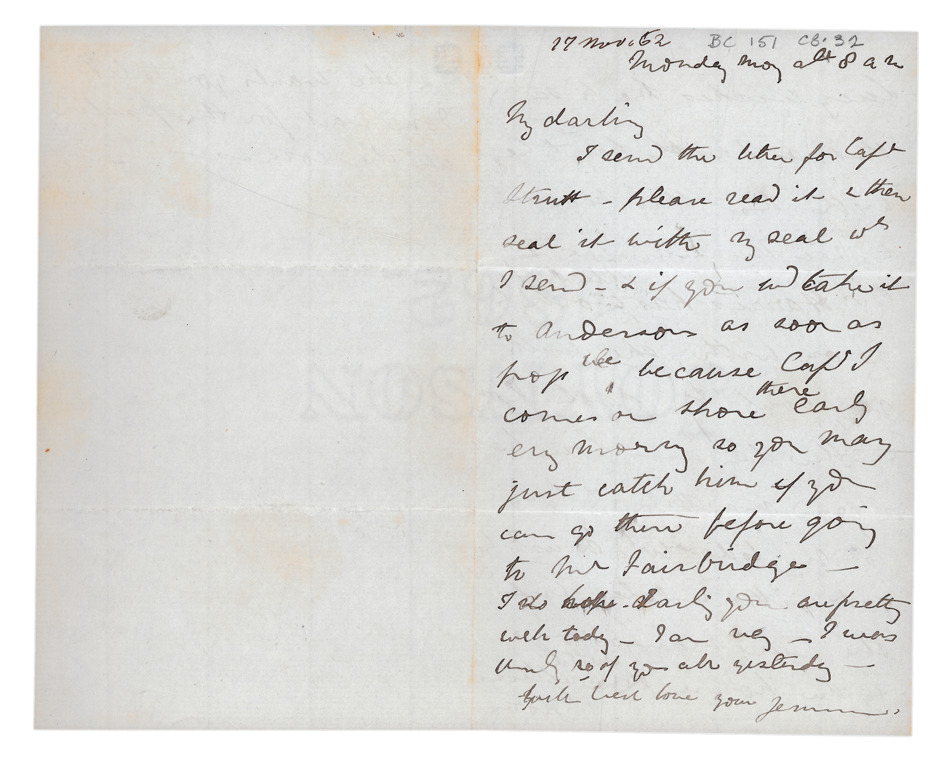 17 Nov. 62 BC 151 C8.32
Monday mog at 8 a m
My darling
I send the letter for Capt
Strutt - please read it & then
seal it with my seal wh
I send - & if you wd take it
to Andersons as soon as
poss ible because Capt J
comes on shore there early
evy morng so you may
just catch him if you
can go there before going
to Mr Fairbridge —
I do hope darling you are pretty
well today - I am - I was
of you all yesterday —
with best love your